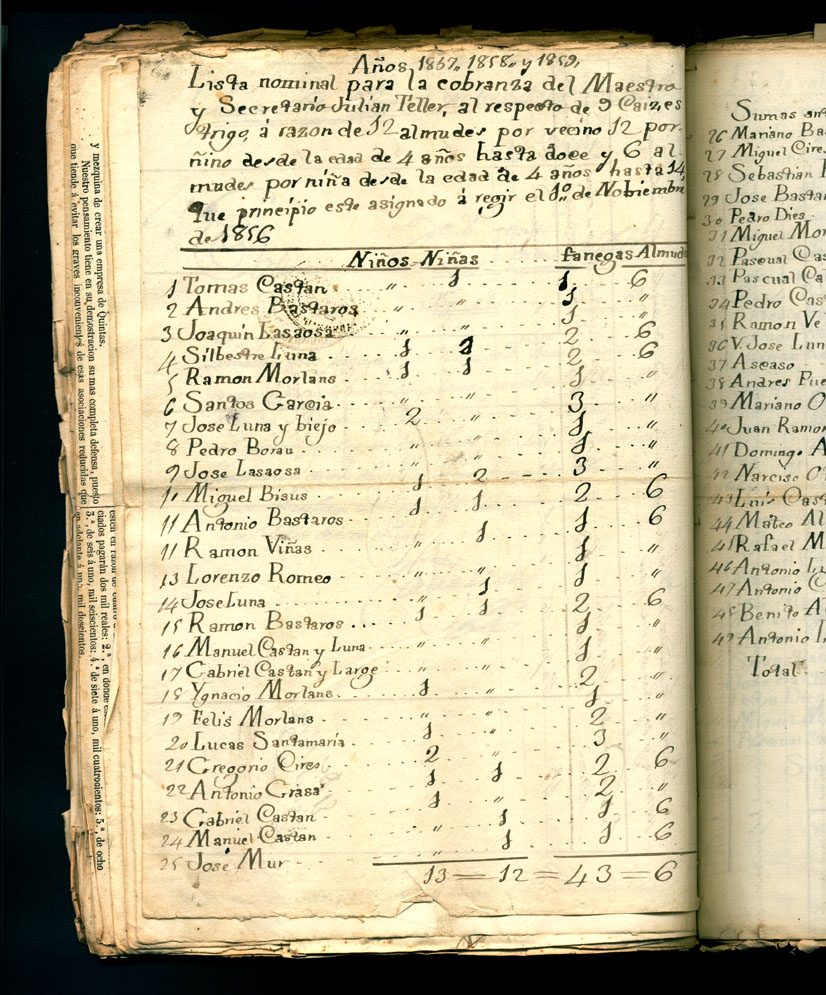 Años, 1857, 1858, y 1859,
Lista nominal para la cobranza del Maestro
y Secretario Julian Teller, al respecto de 9 Caizes
trigo, á razon de 12 almudes por vecino 12 por
ñino desde la edad de 4 años hasta doce y 6 al
mudes por niña desde la edad de 4 años hasta 14,
que principio este asignado á regir el 1º de Nobiembre
de 1856
Niños Niñas fanegas Almud
1 Tomas Castan " 1 1 6
2 Andres Bastaros " " 1 "
3 Joaquin Lasaosa " " 1 "
4 Silbestre Luna 1 1 2 6
5 Ramon Morlans 1 1 2 6
6 Santos Garcia " " 1 "
7 Jose Luna y biejo 2 " 3 "
8 Pedro Borau " " 1 "
9 Jose Lasaosa " " 1 "
10 Miguel Bisus 1 2 3 "
11 Antonio Bastaros 1 1 2 6
11 Ramon Viñas " 1 1 6
13 Lorenzo Romeo " " 1 "
14 Jose Luna " 1 1 "
15 Ramon Bastaros 1 1 2 6
16 Manuel Castan y Luna " " 1 "
17 Gabriel Castan y Large " " 1 "
18 Ygnacio Morlans 1 " 2 "
19 Felis Morlans " " 1 "
20 Lucas Santamaria 1 " 2 "
21 Gregorio Cires 2 " 3 "
22 Antonio Grasa 1 1 2 6
23 Gabriel Castan 1 " 2 "
24 Manuel Castan " 1 1 6
25 Jose Mur " 1 1 6
13 = 12 = 43 = 6
y mezquina de crear una empresa de Quintas.
Nuestro pensamiento tiene en su demostracion su mas completa defensa, puesto
que tiende á evitar los graves inconvenientes de esas asociaciones reducidas que
ciados pagarán dos mil reales: 2.ª, en donde
3.ª, de seis á uno, mil seiscientos: 4.ª de siete á uno, mil cuatrocientos: 5.ª, de ocho
en adelante á uno, mil doscientos.
Sumas
26 Mariano
27 Miguel Cires
28 Sebastian
29 Jose Bastar
30 Pedro Dies
31 Miguel Mor
32 Pascual Cas
33 Pascual Ca
34 Pedro Cas
35 Ramon Ve
36 V. Jose Lun
37 Ascaso
38 Andres Pue
39 Mariano
40 Juan Ramon
41 Domingo A
42 Narciso
43 Luis Cast
44 Mateo Al
45 Rafael M
46 Antonio Lu
47 Antonio
48 Benito A
49 Antonio
Total